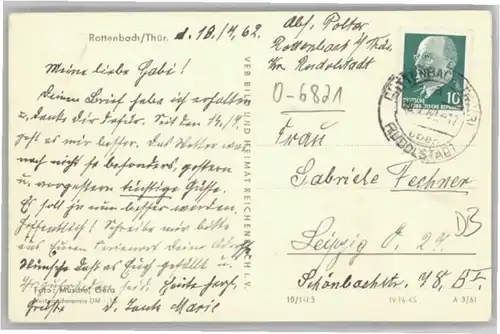 Rottenbach/Thür.
d. 18./4. 62
Meine liebe Gabi!
Deinen Brief habe ich erhalten
u. danke Dir dafür. Seit den 14./4.
geht es mir besser. Das Wetter war
noch nicht so besonders, gestern
u. vorgestern tüchtige Güsse.
Es soll ja nun besser werden,
hoffentlich! Schreibe mir bitte
aus Euren Ferienort Deine
Wünsche daß es Euch gefällt u.
Heute herzl.
Grüsse d. Tante Marie
Foto: Musdre, Gera
VEB BILD UND HEIMAT REICHENBACH I. V.
Abs. Polter
Rottenbach/Thür.
Kr. Rudolstadt
O-6821
DEUTSCHE
DEMOKRATISCHE REPUBLIK
10
ROTTENBACH (THÜR)
über
RUDOLSTADT
Frau
Gabriele Fechner
Leipzig O. 27
Schönbachstr. 48 B I
D3
10/1143
IV-14-45
A 3/61